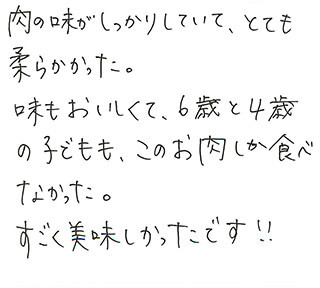 肉の味がしっかりしていて、とても
柔らかかった。
味もおいしくて、6歳と4歳
の子どもも、このお肉しか食べ
なかった。
すごく美味しかったです!!